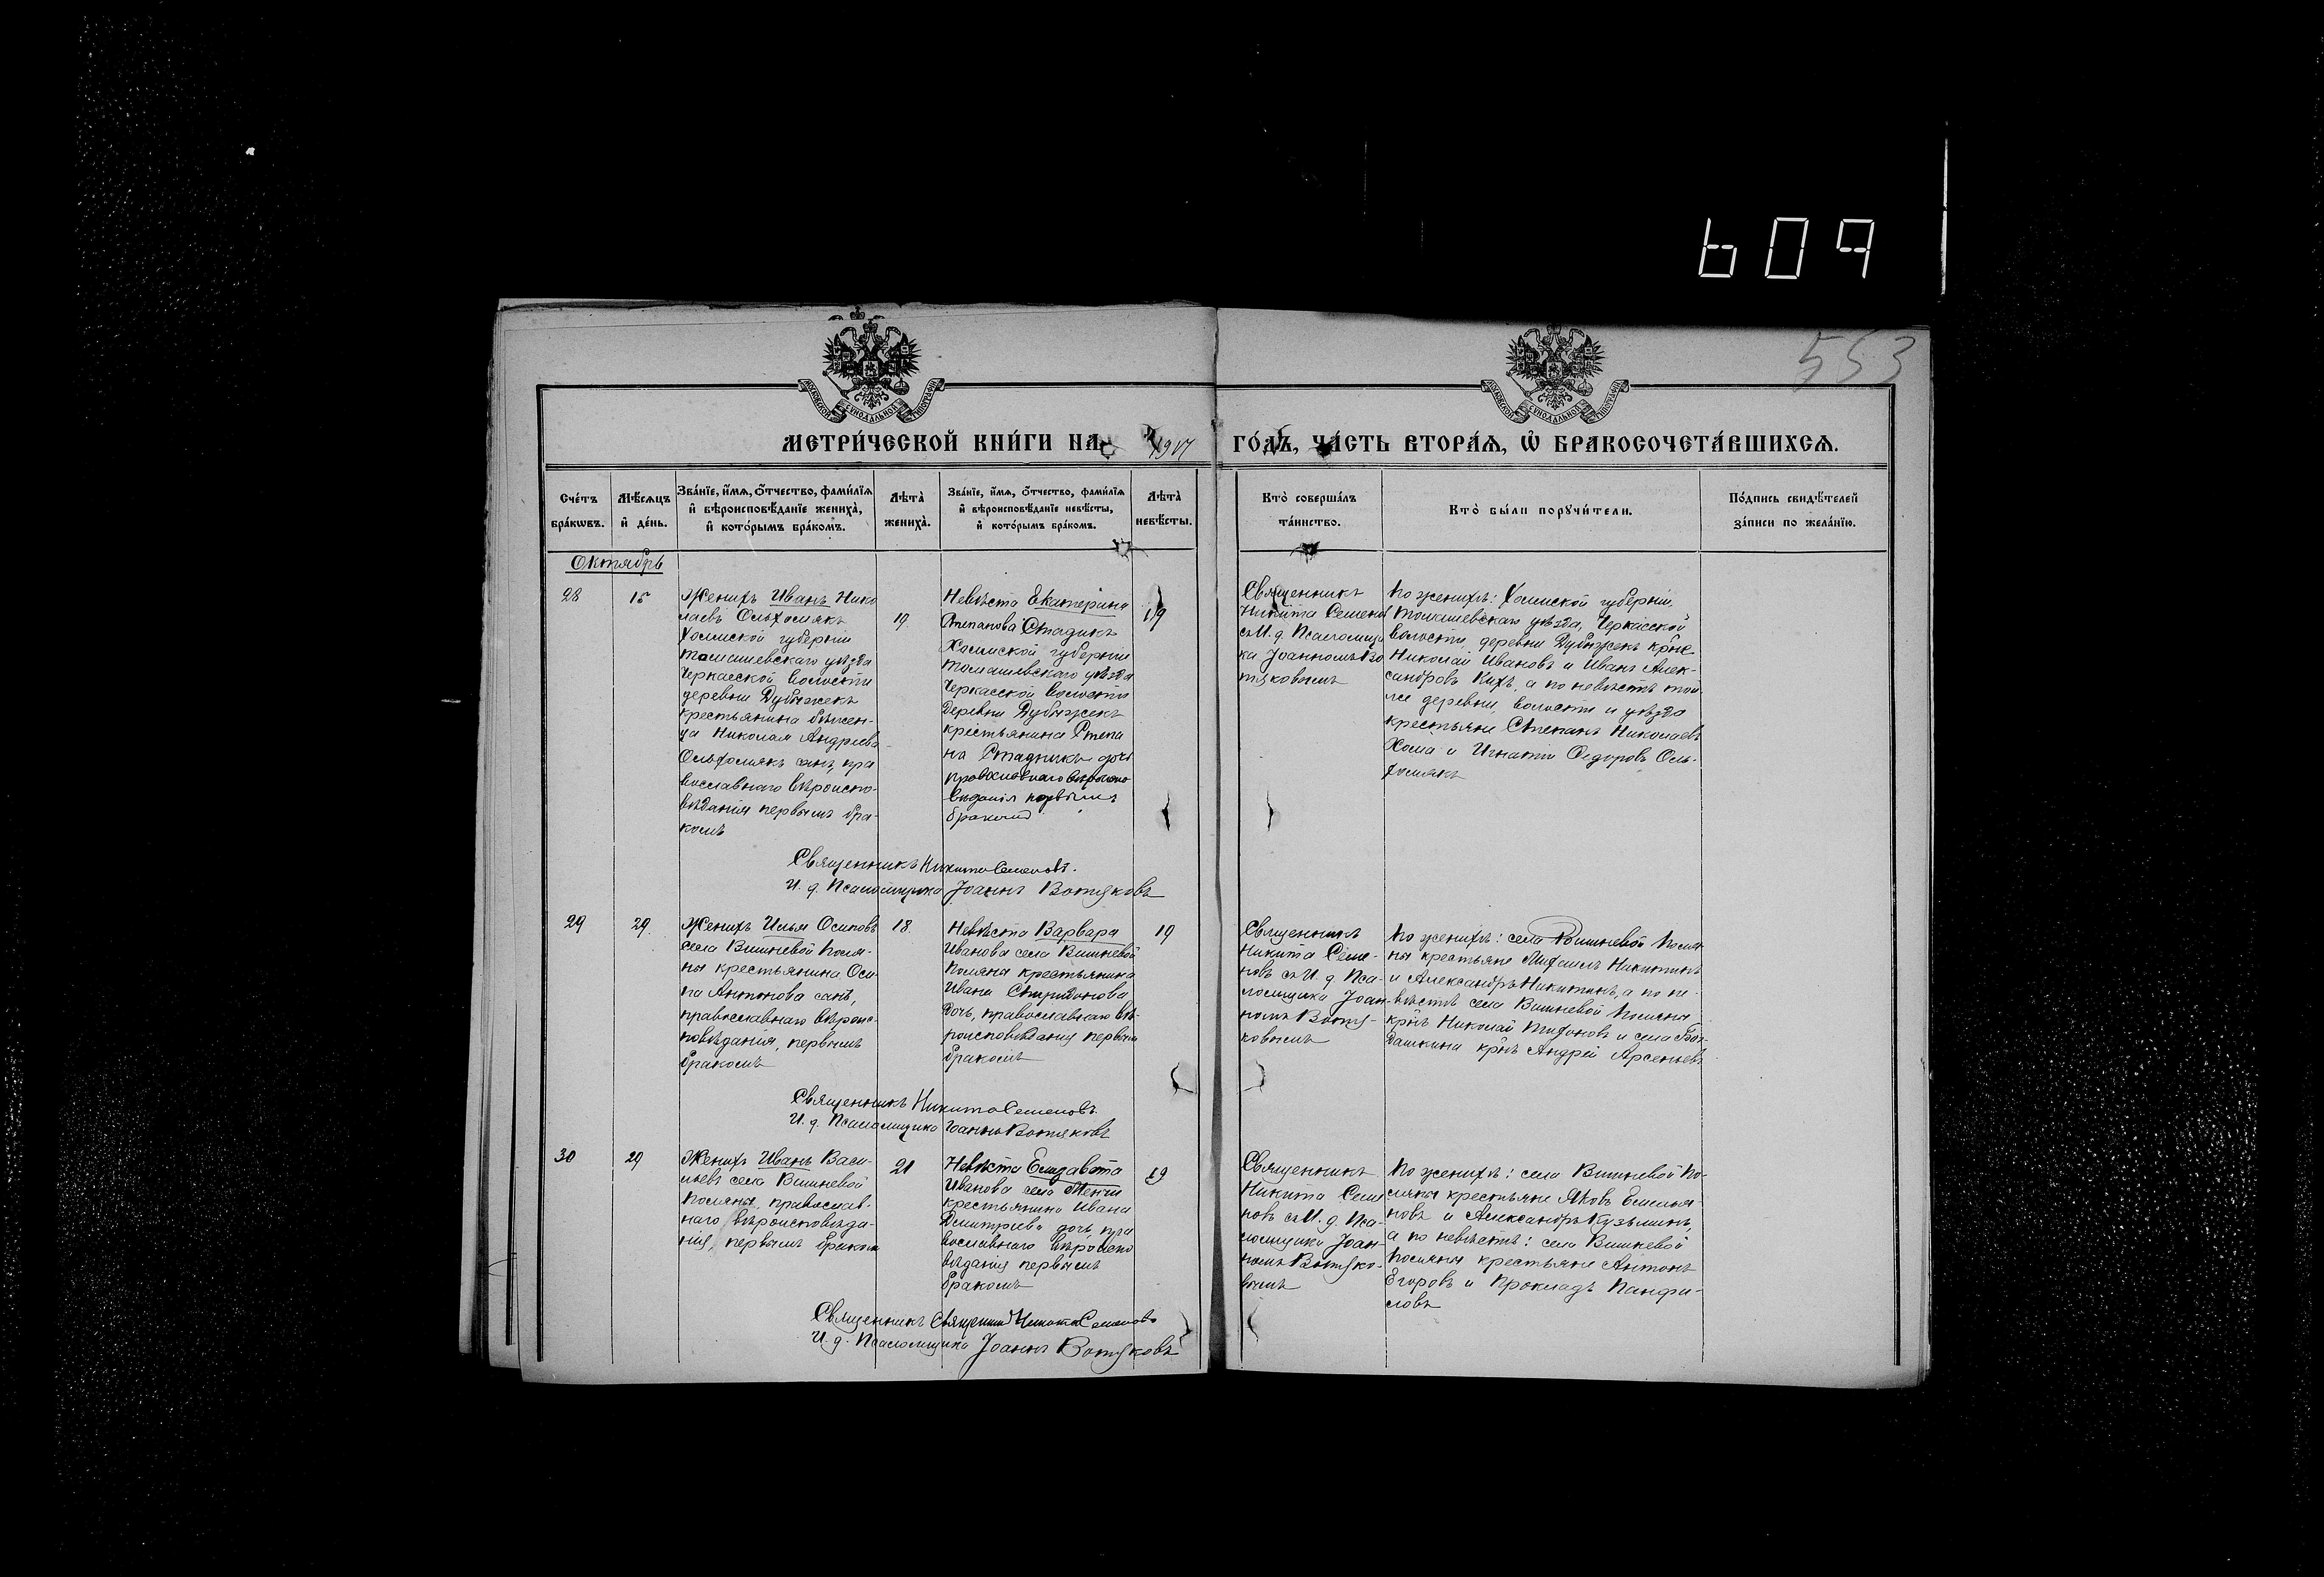 609
553
МОСКОВСКОЙ СѴНОДАЛЬНОЙ ТИПОГРАФІИ
МОСКОВСКОЙ СѴНОДАЛЬНОЙ ТИПОГРАФІИ
МЕТРИ́ЧЕСКОЙ КНИ́ГИ НА 1917 ГО́ДЪ, ЧА́СТЬ ВТОРА́Ѧ, Ѽ БРАКОСОЧЕТА́ВШИХСѦ.
Сче́тъ
бра́кѡвъ.
Мѣ́сѧцъ
и҆ де́нь.
Зва́нїе, и҆́мѧ, ѻ҆́тчество, фами́лїѧ
и҆ вѣроисповѣ́данїе жениха̀,
и҆ кото́рымъ бра́комъ.
Лѣта̀
жениха̀.
Зва́нїе, и҆́мѧ, ѻ҆́тчество, фами́лїѧ
и҆ вѣроисповѣ́данїе невѣ́сты,
и҆ кото́рымъ бра́комъ.
Лѣта̀
невѣ́сты.
Кто̀ соверша́лъ
та́инство.
Кто̀ бы́ли порꙋчи́тели.
По́дпись свидѣ́телей
за́писи по жела́нїю.
Октябрь
28
15
Женихъ Иванъ Нико
лаевъ Ольхомякъ
Холмской губерніи
Томашевскаго уѣзда
Черкасской волости
деревни Дубыжекъ
крестьянина бѣжен-
ца Николая Андреева
Ольхомякъ сынъ, пра
вославнаго вѣроиспо-
вѣданія первымъ бра-
комъ
19
Невѣста Екатерина
Степанова Стадикъ
Холмской губерніи
Томашевскаго уѣзда
Черкасской волости
Деревни Дубыжекъ
крестьянина Степа
на Стадникъ дочь
православнаго вѣроиспо
вѣданія первымъ
бракомъ
19
Священникъ
Никита Семенов
съ И. д. Псаломщи
ка Іоанномъ Во
тяковымъ
По женихѣ: Холмской губерніи,
Томашевскаго уѣзда, Черкасской
волости, деревни Дубыжекъ крне
Николай Ивановъ и Иванъ Алек-
сандровъ Кихъ, а по невѣстѣ той
же деревни, волости и уѣзда
крестьяне Степанъ Николаевъ
Хома и Игнатій Федоровъ Оль-
хомякъ
Священникъ Никита Семеновъ.
И. д. Псаломщика Іоаннъ Вотяковъ
29
29.
Женихъ Илья Осиповъ
села Вишневой Поля-
ны крестьянина Оси-
па Антонова сынъ,
православнаго вѣроис-
повѣданія, первымъ
бракомъ
18.
Невѣста Варвара
Иванова села Вишневой
Поляны крестьянина
Ивана Спиридонова
дочь, православнаго вѣ-
роисповѣданія первым
бракомъ
19
Священникъ
Никита Семе-
новъ съ И. д Пса-
ломщика Іоан-
номъ Вотя-
ковымъ
По женихѣ: села Вишневой Поля
ны крестьяне Михаилъ Никитинъ
и Александръ Никитинъ, а по не-
вѣстѣ села Вишневой Поляны
крнъ Николай Тихоновъ и села Бол-
дашкина крнъ Андрей Арсеньевъ
Священникъ Никита Семеновъ
И. д. Псаломщика Іоаннъ Вотяковъ
30
29
Женихъ Иванъ Васи-
льевъ села Вишневой
Поляны, православ-
наго, вѣроисповѣда-
нія, первымъ браком
21
Невѣста Елизавета
Иванова села
крестьянина Ивана
Дмитриева дочь, пра
вославнаго вѣроиспо
вѣданія первымъ
бракомъ
19
Священникъ
Никита Семе
новъ съ И. д. Пса-
ломщика Іоан-
номъ Вотяко-
вымъ
По женихѣ: села Вишневой По-
ляны крестьяне Яковъ Емелья
новъ и Александръ Кузьминъ,
а по невѣстѣ: села Вишневой
Поляны крестьяне Антонъ
Егоровъ и ПроклаДъ Панфи-
ловъ
Священникъ Священни Никита Семеновъ
И. д. Псаломщика Іоаннъ Вотяковъ